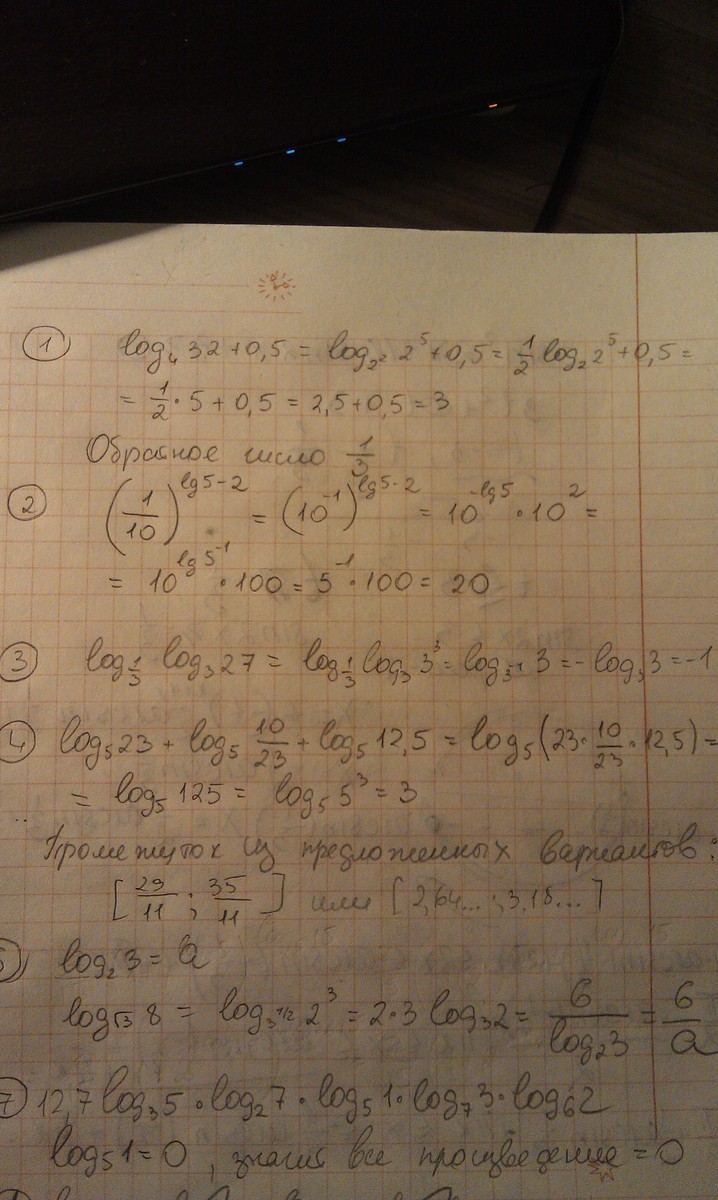 ① log₄ 32 + 0,5 = log₂² 2⁵ + 0,5 = 1/2 log₂ 2⁵ + 0,5 =
= 1/2 · 5 + 0,5 = 2,5 + 0,5 = 3
Обратное число 1/3
② (1/10)^(lg5-2) = (10⁻¹)^(lg5-2) = 10^(-lg5) · 10² =
= 10^(lg5⁻¹) · 100 = 5⁻¹ · 100 = 20
③ log_(1/3) log₃ 27 = log_(1/3) log₃ 3³ = log_(3⁻¹) 3 = - log₃ 3 = -1
④ log₅ 23 + log₅ 10/23 + log₅ 12,5 = log₅ (23 · 10/23 · 12,5) =
= log₅ 125 = log₅ 5³ = 3
Промежуток из предложенных вариантов:
[29/11 ; 35/11] или [2,64... ; 3,18...]
log₂ 3 = a
log_√3 8 = log_(3^(1/2)) 2³ = 2·3 log₃ 2 = 6/(log₂ 3) = 6/a
⑦ 12,7 log₃ 5 · log₂ 7 · log₅ 1 · log₇ 3 · log₆ 2
log₅ 1 = 0 , значит все произведение = 0